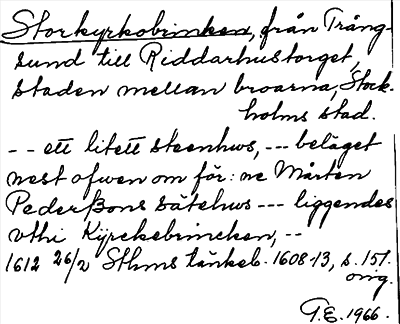 Storkyrkobrinken, från Trång-
sund till Riddarhustorget,
staden mellan broarna, Stock-
holms stad.
-- ett litett steenhws, --- beläget
nest ofwen om för: ne Mårten
Pederßons sätehws --- liggendes
vthi Kyrckebrincken, --
1612 26/2 Sthms tänkeb. 1608-13, s. 157.
orig.
G.E. 1966.